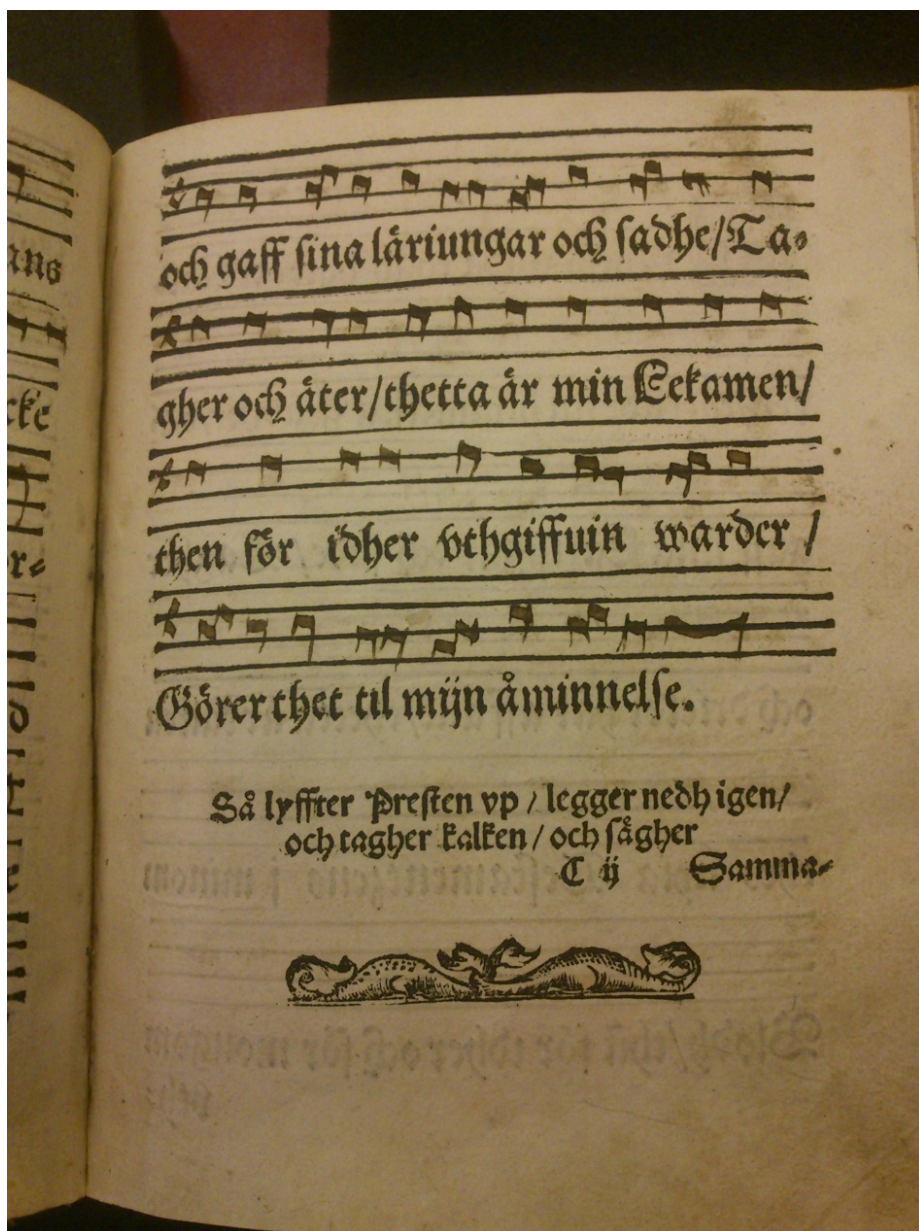 och gaff sina läriungar och sadhe/Ta-
gher och äter/thetta är min Lekamen/
then för idher vthgiffuin warder /
Görer thet til mijn åminnelse.
Så lyffter Presten vp / legger nedh igen/
och tagher kalken / och sågher
C ij Samma-